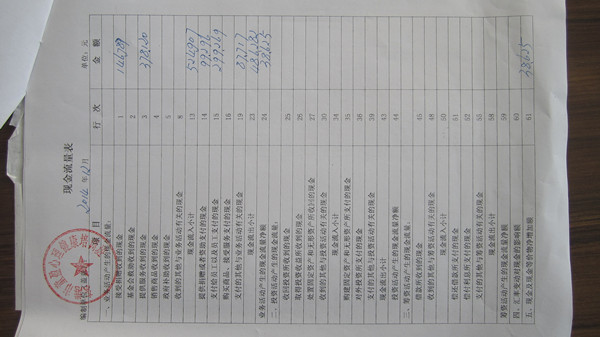 现金流量表
2014 年 12 月
编制单位(盖章) 单位：元
项 目 行 次 金 额
一、业务活动产生的现金流量：
接受捐赠收到的现金 1 146,787
基金会救助收到的现金 2
提供服务收到的现金 3 378,120
销售商品收到的现金 4
政府补助收到的现金 5
收到的其他与业务活动有关的现金 8
现金流入小计 13 524,907
提供捐赠或者资助支付的现金 14 99,296
支付给员工以及员工支付的现金 15 299,269
购买商品、接受服务支付的现金 16
支付的其他与业务活动有关的现金 19 87,717
现金流出小计 23 486,282
业务活动产生的现金流量净额 24 38,625
二、投资活动产生的现金流量：
收回投资所收到的现金 25
取得投资收益所收到的现金 26
处置固定资产和无形资产所收回的现金 27
收到的其他与投资活动有关的现金 30
现金流入小计 34
购建固定资产和无形资产所支付的现金 35
对外投资所支付的现金 36
支付的其他与投资活动有关的现金 39
现金流出小计 43
投资活动产生的现金流量净额 44
三、筹资活动产生的现金流量：
借款所收到的现金 45
收到的其他与筹资活动有关的现金 48
现金流入小计 50
偿还借款所支付的现金 51
偿付利息所支付的现金 52
支付的其他与筹资活动有关的现金 55
现金流出小计 58
筹资活动产生的现金流量净额 59
四、汇率变动对现金的影响额 60
五、现金及现金等价物净增加额 61 38,625